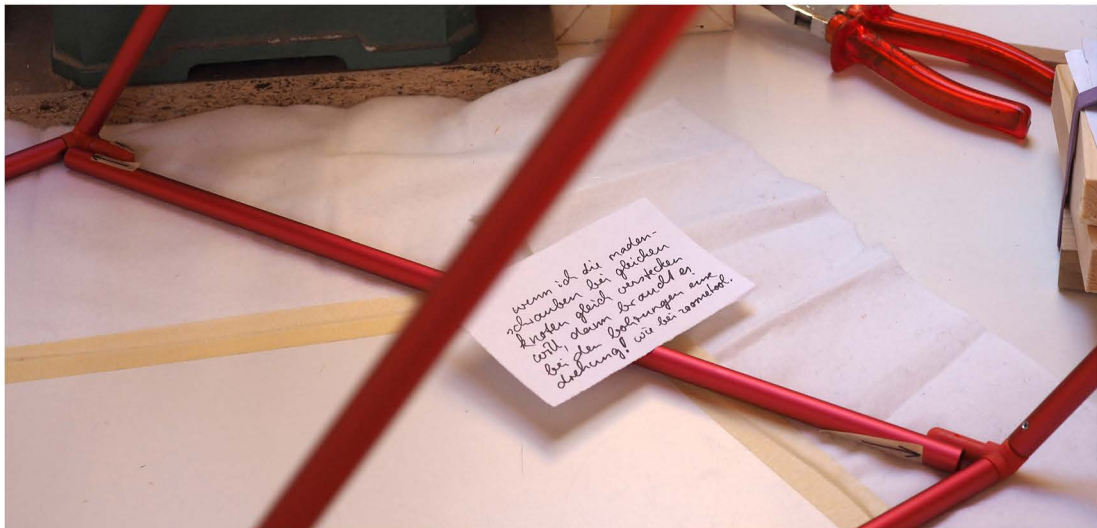 wenn ich die maden-
schauben bei gleichen
knoten gleich verstecken
will, dann braucht es
bei den bohrungen eine
drehung! wie bei zometool.